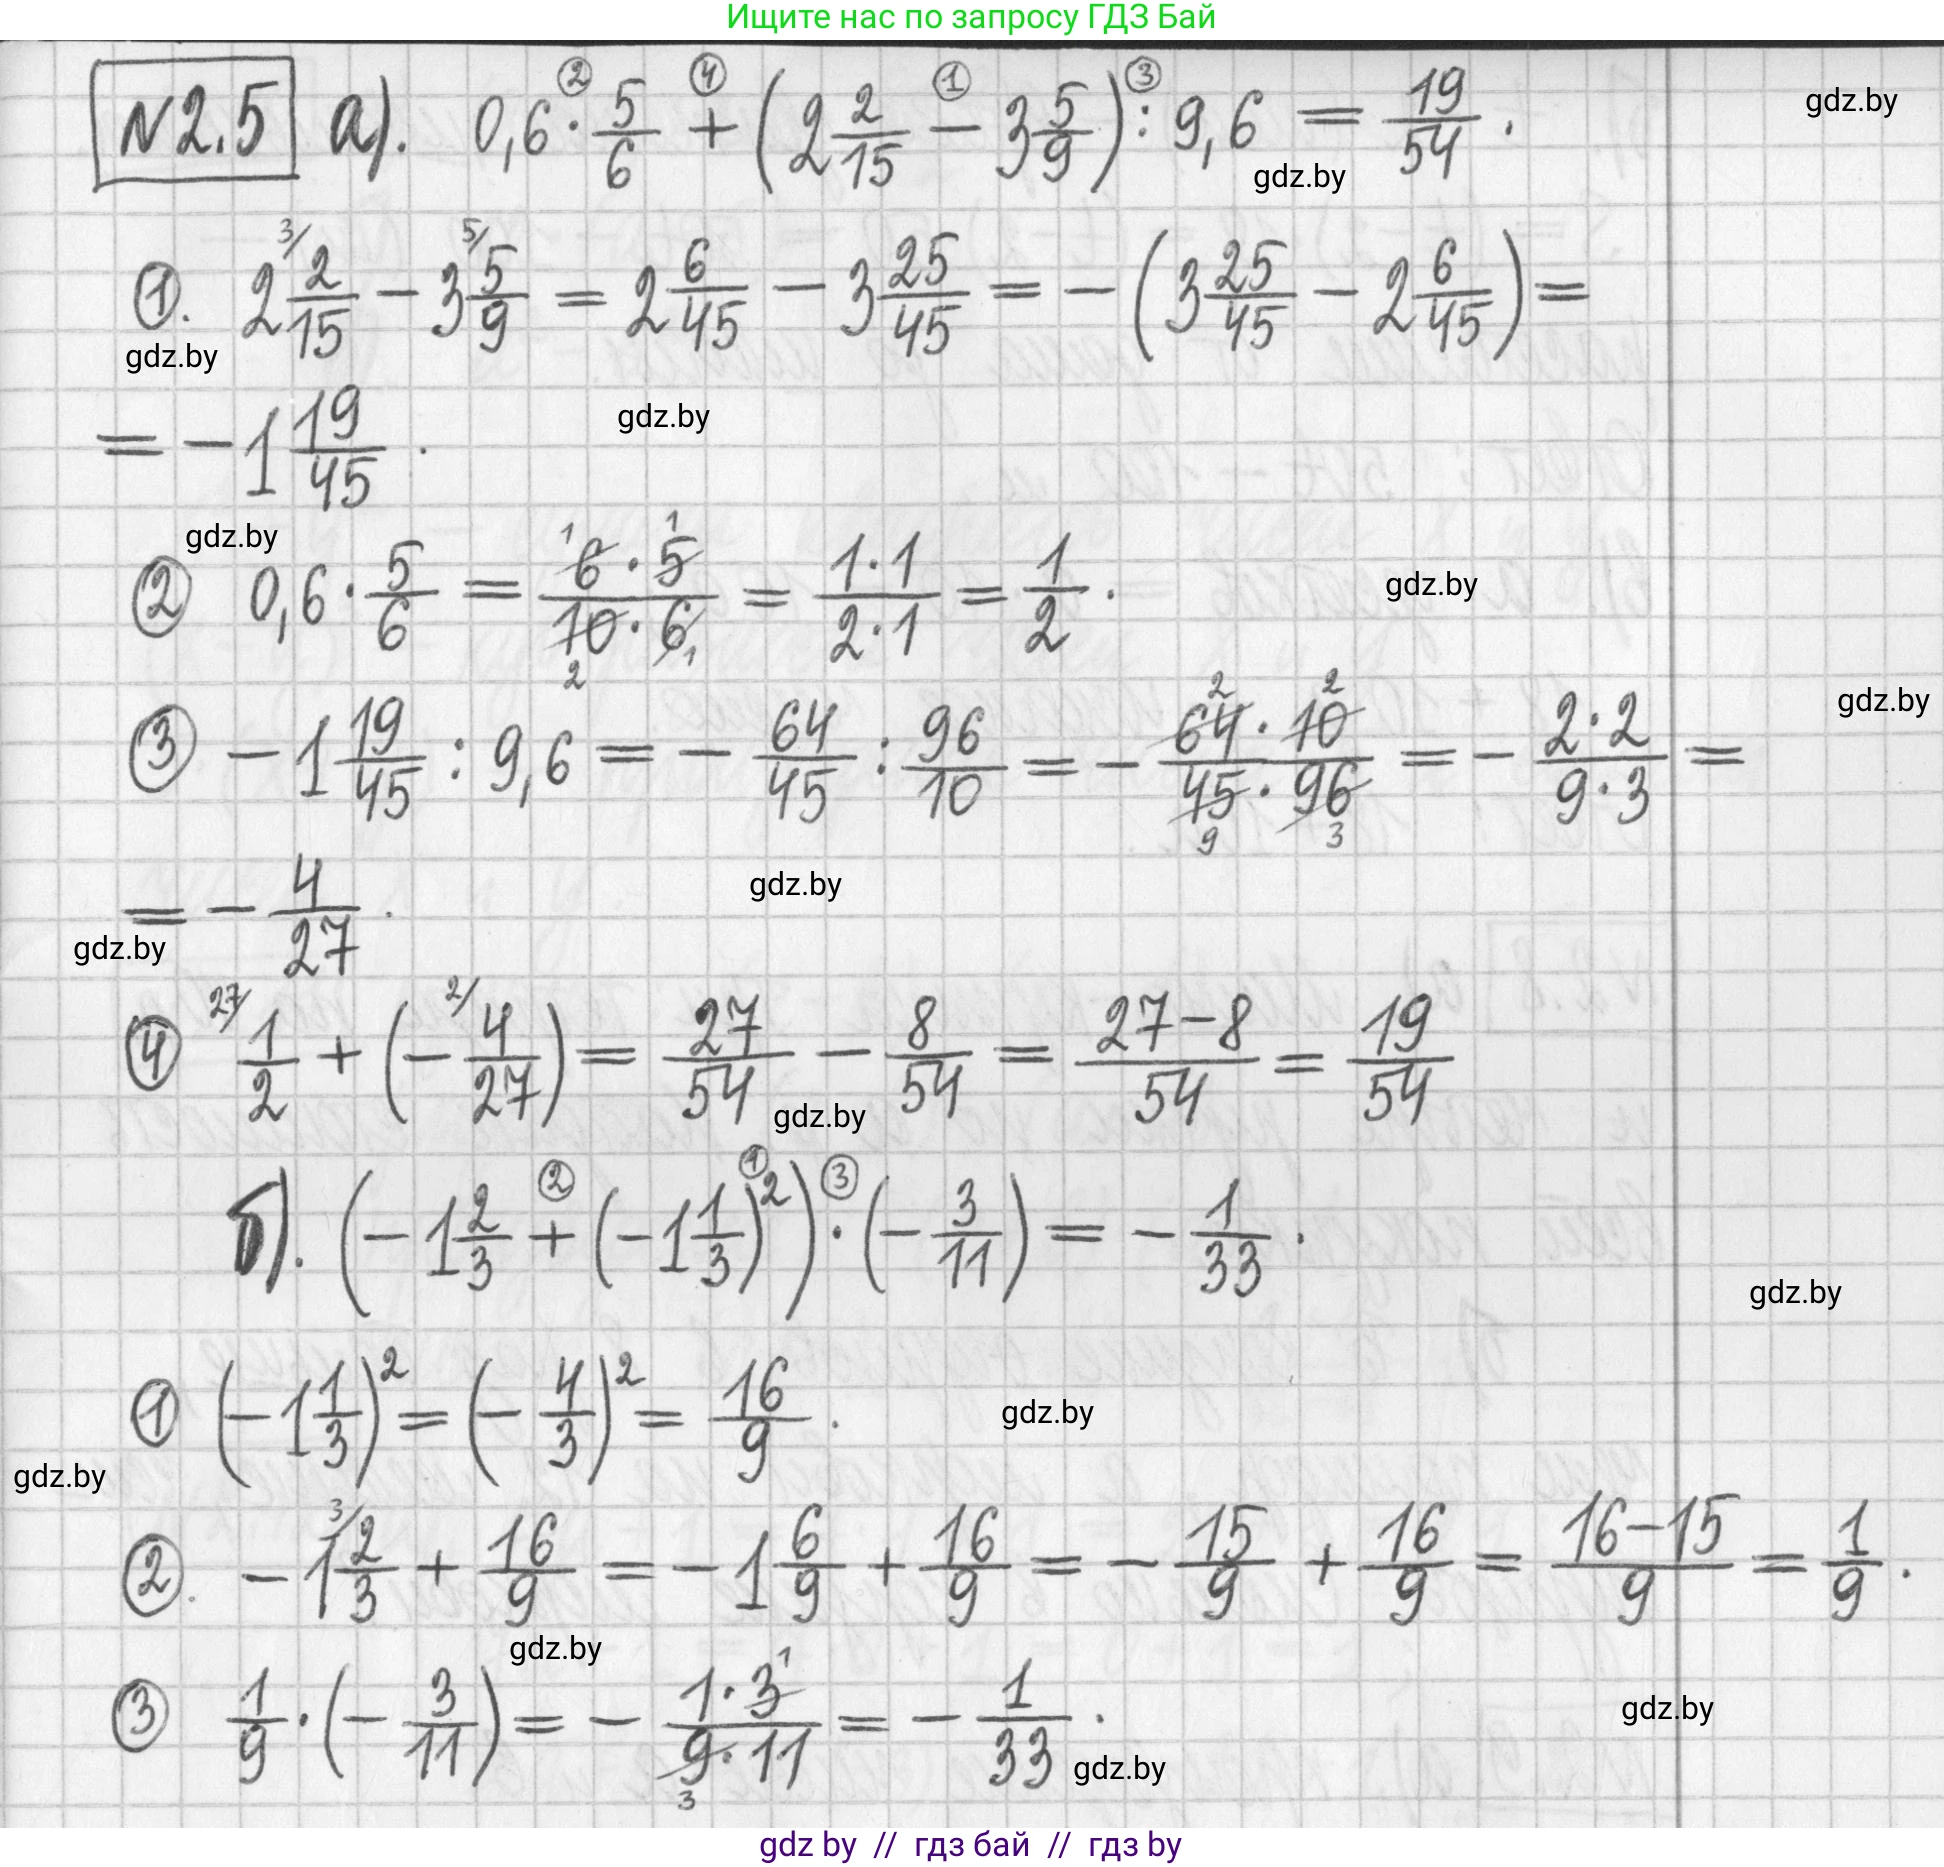 Ищите нас по запросу ГДЗ Бай
N2.5 а). 0,6 · 5/6 + (2 2/15 − 3 5/9) : 9,6 = 19/54 .
② ④ ① ③
gdz.by
gdz.by
①. 2 2/15 − 3 5/9 = 2 6/45 − 3 25/45 = −(3 25/45 − 2 6/45) =
3/ 5/
gdz.by
= −1 19/45 .
gdz.by
gdz.by
② 0,6 · 5/6 = 6·5/10·6 = 1·1/2·1 = 1/2 .
1 1 2 1
gdz.by
gdz.by
③ −1 19/45 : 9,6 = −64/45 : 96/10 = −64·10/45·96 = −2·2/9·3 =
2 2 9 3
= −4/27 .
gdz.by
gdz.by
④ 1/2 + (−4/27) = 27/54 − 8/54 = 27−8/54 = 19/54
27/ 2/
gdz.by
б). (−1 2/3 + (−1 1/3)²) · (−3/11) = −1/33 .
② ① ③
gdz.by
① (−1 1/3)² = (−4/3)² = 16/9 .
gdz.by
gdz.by
②. −1 2/3 + 16/9 = −1 6/9 + 16/9 = −15/9 + 16/9 = 16−15/9 = 1/9 .
3/
gdz.by
③ 1/9 · (−3/11) = −1·3/9·11 = −1/33 .
1 3
gdz.by
gdz.by
gdz by // гдз бай // гдз by